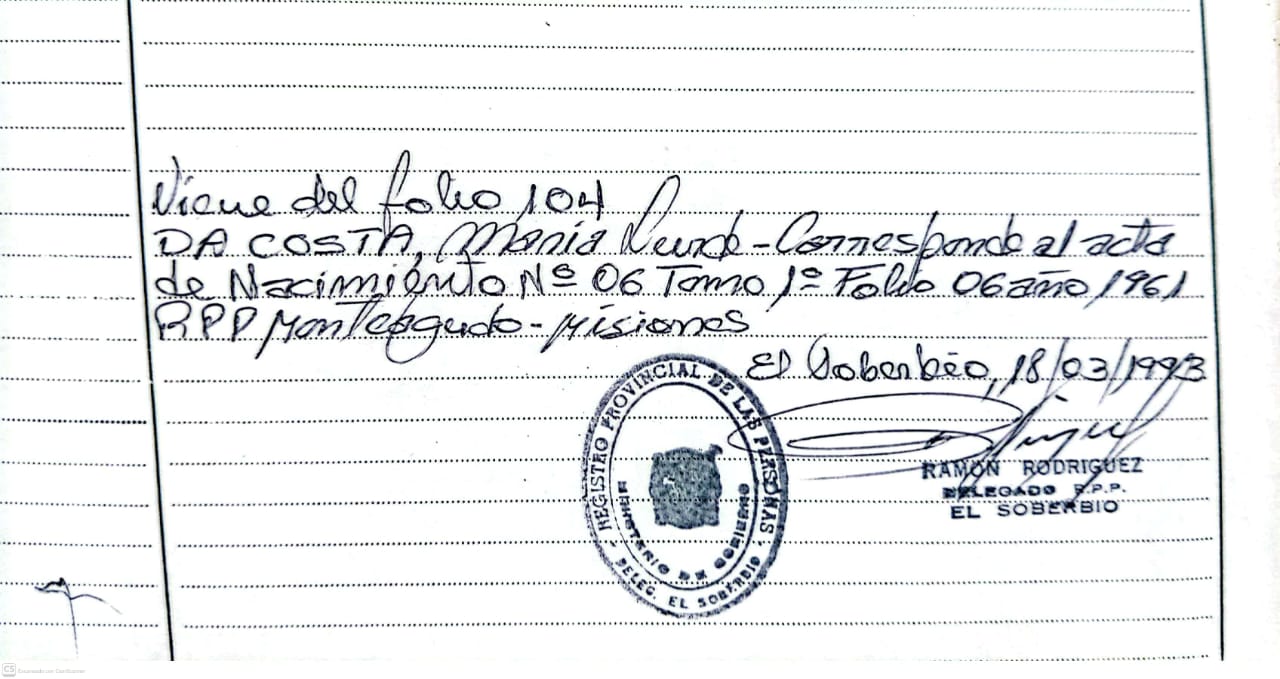 Viene del folio 104
DA COSTA, Maria - Corresponde al acta
de Nacimiento Nº 06 Tomo 1º Folio 06 año 1961
RPP Monteagudo - Misiones
El Soberbio, 18/03/1993
REGISTRO PROVINCIAL DE LAS PERSONAS
MINISTERIO DE GOBIERNO
DELEG. EL SOBERBIO
RAMON RODRIGUEZ
DELEGADO R.P.P.
EL SOBERBIO
CS Escaneado con CamScanner